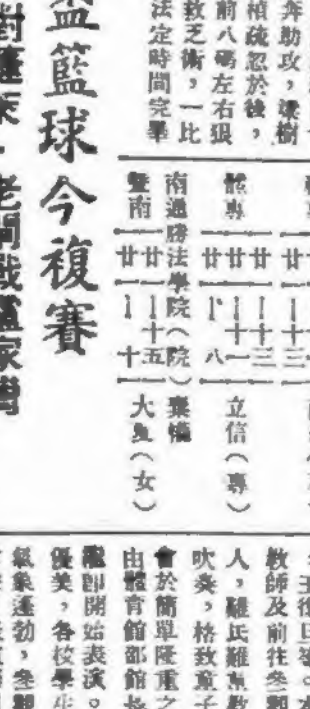 奔助攻，梁樹
楨疏忽於後，
前八碼左右狠
救乏術，一比
法定時間完畢
體專
廿一｜十三
廿一｜十一
廿一｜八
立信（專）
南通勝法學院（院）棄權
暨南
廿一｜十五
廿一｜十
大夏（女）
盃籃球今複賽
對蓬萊·老閘戰盧家灣
教師及前往參觀
人，難民難童教
吹奏，格致童子
會於簡單隆重之
由體育館邵館長
即開始表演。
優美，各校學生
氣象蓬勃，參觀